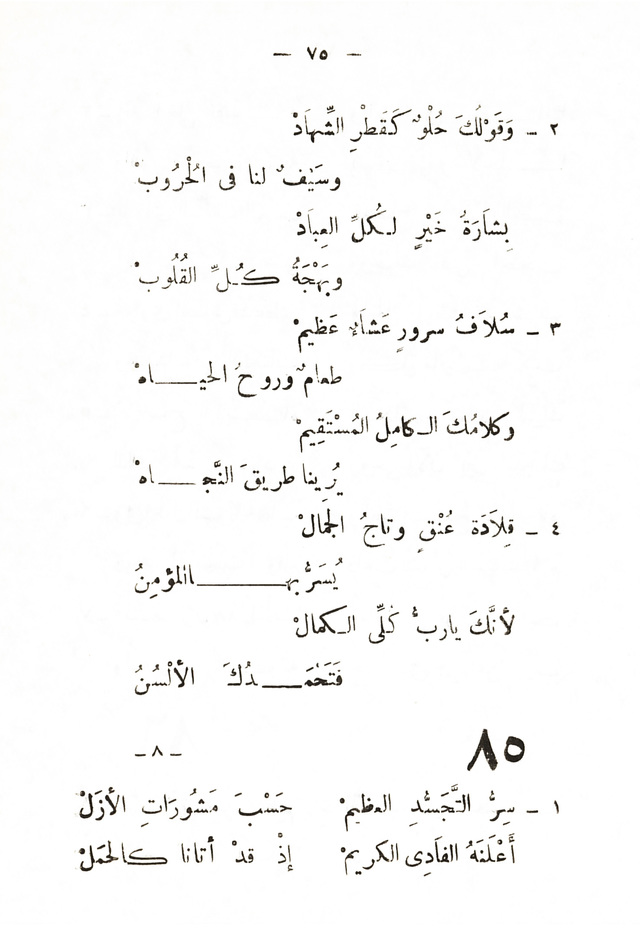 — ٧٥ —
٢ – وَقَوْلُكَ حُلْوٌ كَقَطْرِ الشِّهَادْ
وسَيْفٌ لنا فى الْحُرُوبْ
بِشَارَةُ خَيْرٍ لِكُلِّ العِبَادْ
وبَهْجَةُ كُلِّ القُلُوبْ
٣ – سُلاَفُ سرورٍ عَشَاءٌ عَظِيمْ
طعامٌ وروحُ الحيـاهْ
وكلامُكَ الكامِلُ المُسْتَقِيمْ
يُرِينا طريقَ النَّجـاهْ
٤ – قِلاَدَة عُنْقٍ وتاجُ الجَمالْ
يُسَرُّ بهـاالمؤمِنُ
لأنَّكَ ياربُّ كُلِّى الكمالْ
فَتَحْمَـدُكَ الألْسُنُ
٨٥ – ٨ –
١ – سِرُّ التَّجَسُّدِ العظيمْ حَسْبَ مَشُورَاتِ الأزَلْ
أَعْلَنَهُ الفَادِى الكريمْ إذْ قدْ أتانا كالحَمَلْ